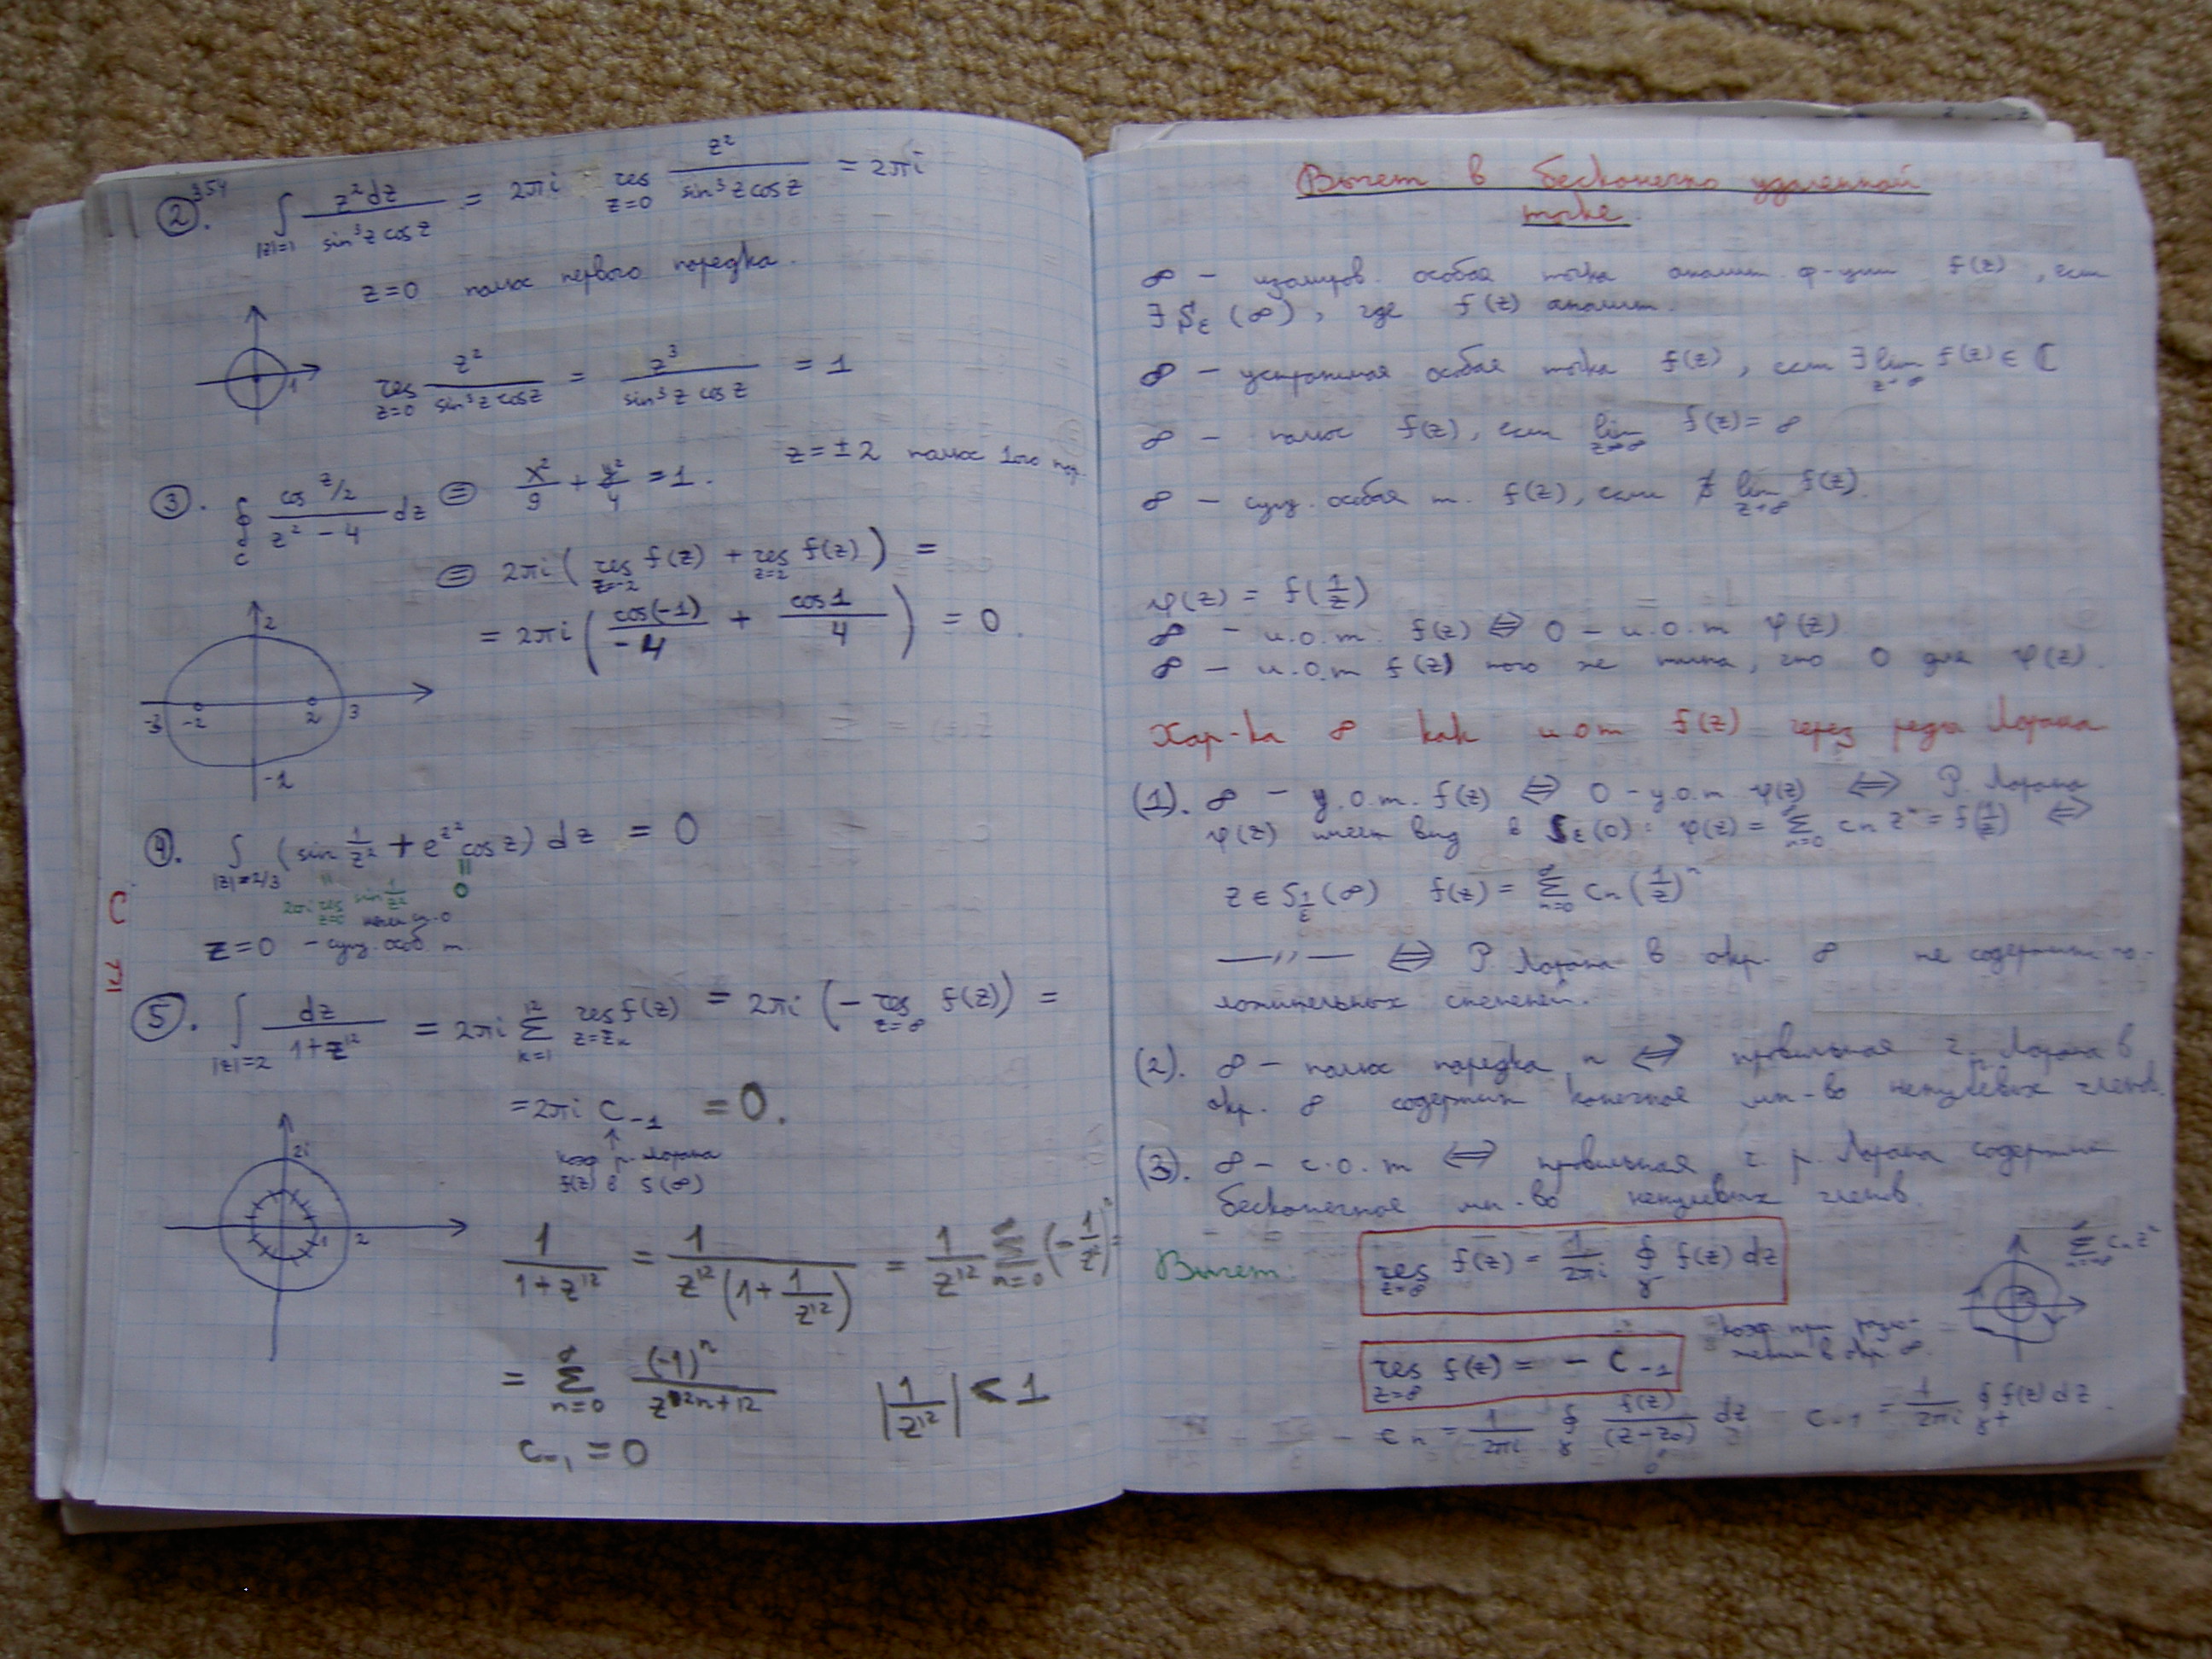 ②.³⁵⁴ ∫_{|z|=1} z²dz / (sin³z cosz) = 2πi res_{z=0} z² / (sin³z cosz) = 2πi
z=0 полюс первого порядка.
1
res_{z=0} z² / (sin³z cosz) = z³ / (sin³z cosz) = 1
z=±2 полюс 1ого пор.
③. ∮_C (cos z/2) / (z²-4) dz ⊜ x²/9 + y²/4 = 1.
⊜ 2πi ( res_{z=-2} f(z) + res_{z=2} f(z) ) =
= 2πi ( cos(-1)/-4 + cos1/4 ) = 0.
2
-3 -2 2 3
-2
④. ∫_{|z|=2/3} (sin 1/z² + e^{z²} cosz) dz = 0
2πi res_{z=0} sin 1/z² 0
z=0 - сущ. особ. т.
С
⑤. ∫_{|z|=2} dz / (1+z¹²) = 2πi Σ_{k=1}^{12} res_{z=z_k} f(z) = 2πi (- res_{z=∞} f(z)) =
= 2πi C₋₁ = 0.
↑
коэф р. Лорана
f(z) в S(∞)
2i
1 2
1/(1+z¹²) = 1/(z¹²(1+1/z¹²)) = 1/z¹² Σ_{n=0}^∞ (-1/z)ⁿ =
= Σ_{n=0}^∞ (-1)ⁿ / z^{12n+12} |1/z¹²| < 1
C₋₁ = 0
Вычет в бесконечно удаленной
точке.
∞ - изолиров. особая точка аналит. ф-ции f(z), если
∃ S_ε(∞), где f(z) аналит.
∞ - устранимая особая точка f(z), если ∃ lim_{z→∞} f(z) ∈ ℂ
∞ - полюс f(z), если lim_{z→∞} f(z) = ∞
∞ - сущ. особая т. f(z), если ∄ lim_{z→∞} f(z)
φ(z) = f(1/z)
∞ - и.о.т. f(z) ⇔ 0 - и.о.т φ(z)
∞ - и.о.т f(z) того же типа, что 0 для φ(z).
Хар-ка ∞ как и о т f(z) через ряды Лорана
(1). ∞ - у.о.т. f(z) ⇔ 0 - у.о.т φ(z) ⇔ Р. Лорана
φ(z) имеет вид в S_ε(0): φ(z) = Σ_{n=0}^∞ cn zⁿ = f(1/z) ⇔
z ∈ S_{1/ε}(∞) f(z) = Σ_{n=0}^∞ cn (1/z)ⁿ
—〃— ⇔ Р Лорана в окр. ∞ не содержит по-
ложительных степеней.
(2). ∞ - полюс порядка n ⇔ правильная ч. р. Лорана в
окр. ∞ содержит конечное мн-во ненулевых членов.
(3). ∞ - с.о.т ⇔ правильная ч. р. Лорана содержит
бесконечное мн-во ненулевых членов.
Вычет: res_{z=∞} f(z) = 1/2πi ∮_γ f(z) dz
Σ_{n=-∞}^∞ cn zⁿ
res_{z=∞} f(z) = - C₋₁ коэф при разло-
жении в окр. ∞.
cn = 1/2πi ∮_γ f(z)/(z-z₀) dz c₋₁ = 1/2πi ∮_{γ+} f(z) dz.